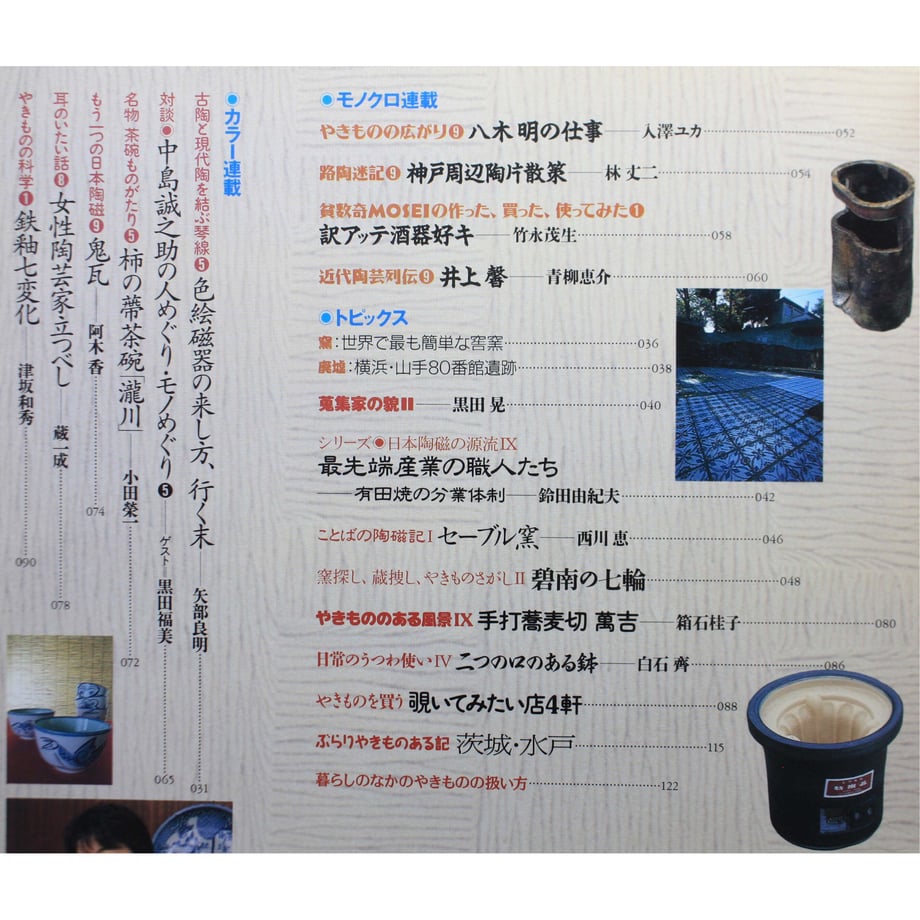 ●カラー連載
古陶と現代陶を結ぶ琴線❺ 色絵磁器の来し方、行く末──矢部良明……031
対談●中島誠之助の人めぐり・モノめぐり❺──ゲスト＝黒田福美……065
名物 茶碗ものがたり❺ 柿の蔕茶碗「瀧川」──小田榮一……072
もう一つの日本陶磁❾ 鬼瓦──阿木 香……074
耳のいたい話❽ 女性陶芸家立つべし──蔵一成……078
やきものの科学❶ 鉄釉七変化──津坂和秀……090
●モノクロ連載
やきものの広がり❾ 八木 明の仕事──入澤ユカ……052
路陶迷記❾ 神戸周辺陶片散策──林 丈二……054
貧数奇MOSEIの作った、買った、使ってみた❶
訳アッテ酒器好キ──竹永茂生……058
近代陶芸列伝❾ 井上 馨──青柳恵介……060
●トピックス
窯:世界で最も簡単な窖窯……036
廃墟:横浜・山手80番館遺跡……038
蒐集家の貌II──黒田 晃……040
シリーズ●日本陶磁の源流IX
最先端産業の職人たち
──有田焼の分業体制──鈴田由紀夫……042
ことばの陶磁記I セーブル窯──西川 恵……046
窯探し、蔵捜し、やきものさがしII 碧南の七輪……048
やきもののある風景IX 手打蕎麦切 萬吉──箱石桂子……080
日常のうつわ使いIV 二つの口のある鉢──白石 齊……086
やきものを買う 覗いてみたい店4軒……088
ぶらりやきものある記 茨城・水戸……115
暮らしのなかのやきものの扱い方……122